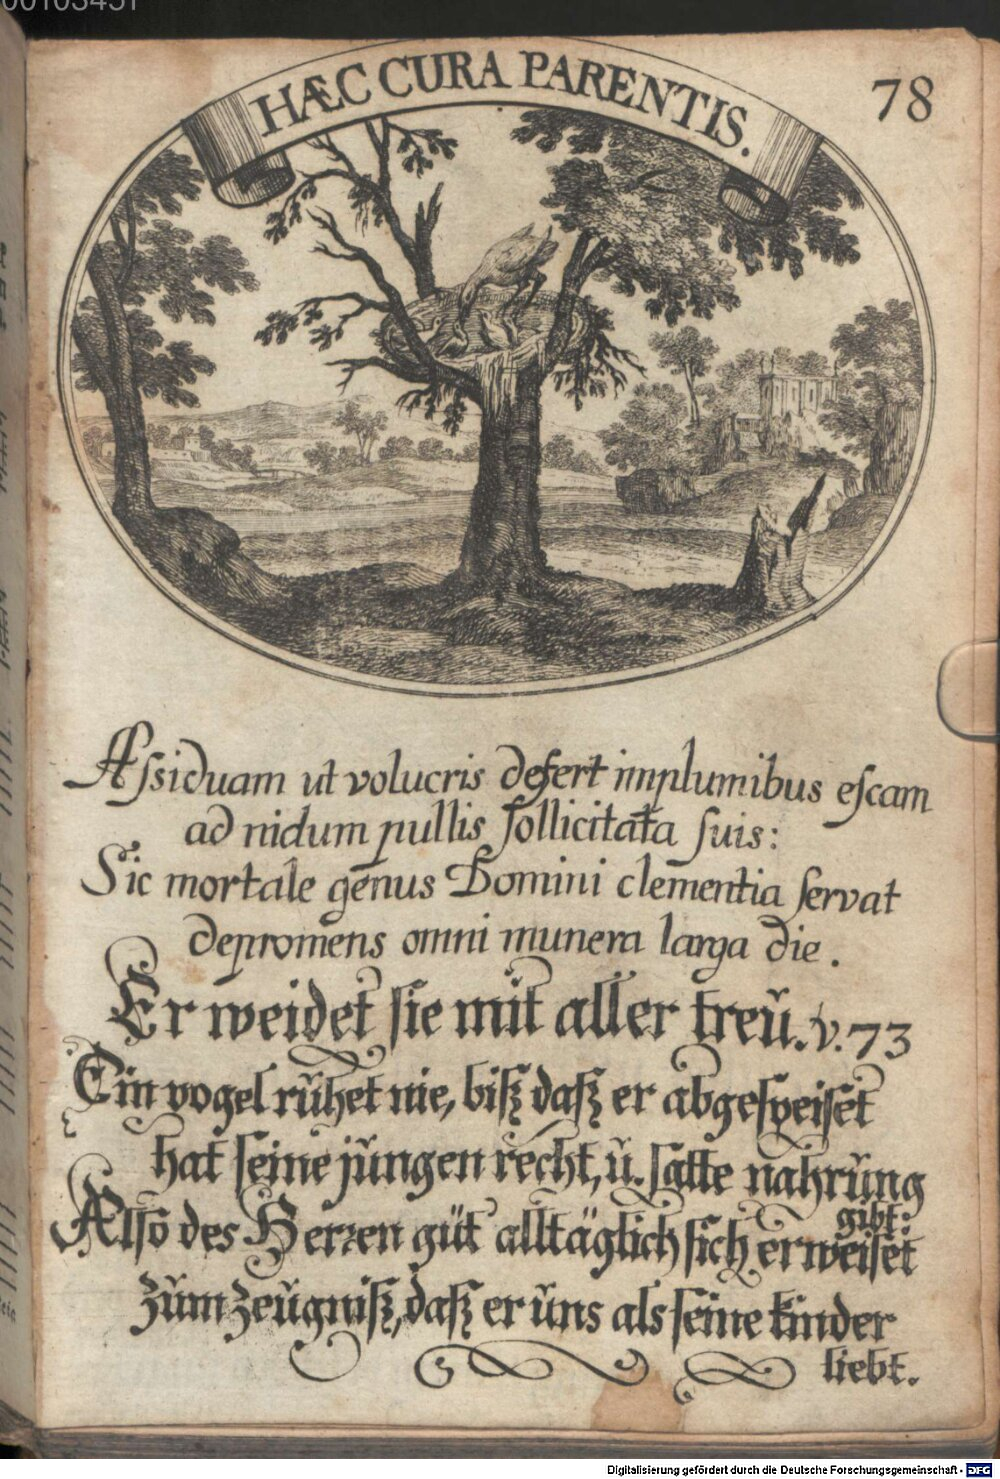 00103451
78
HÆC CURA PARENTIS.
Aſsiduam ut volucris defert implumibus eſcam
ad nidum pullis ſollicitata ſuis:
Sic mortale genus Domini clementia ſervat
depromens omni munera larga die.
Er weidet ſie mit aller treŭ. v. 73
Ein vogel rŭhet nie, biſz daſz er abgeſpeiſet
hat ſeine jŭngen recht, ŭ. ſatte nahrŭng
gibt:
Alſo des Herren güt alltäglich ſich erweiſet
zŭm zeŭgniſz, daſz er ŭns als ſeine kinder
liebt.
Digitalisierung gefördert durch die Deutsche Forschungsgemeinschaft - DFG